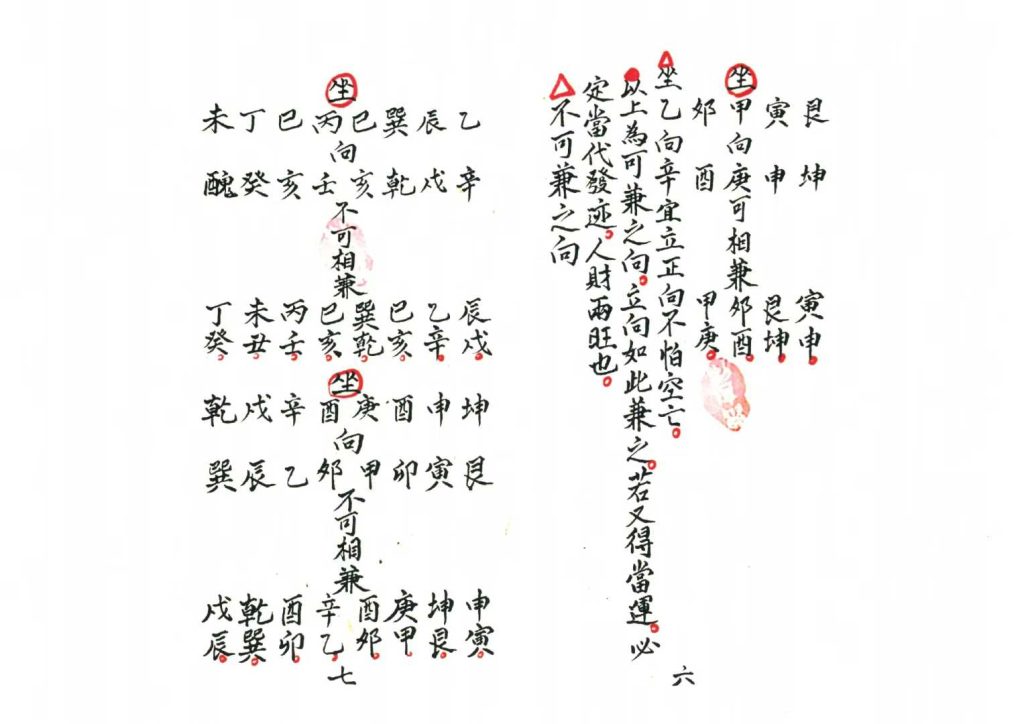 艮坤寅申。
寅申艮坤。
坐甲向庚可相兼夘酉。
夘酉甲庚。
坐乙向辛宜立正向不怕空亡。
以上為可兼之向。立向如此兼之。若又得當運。必
定當代發迹。人財兩旺也。
不可兼之向
六
乙辛辰戌。
辰戌乙辛。
巽乾巳亥。
巳亥巽乾。
坐丙向壬不可相兼巳亥。
巳亥丙壬。
丁癸未丑。
未醜丁癸。
坤艮申寅。
申寅坤艮。
酉卯庚甲。
庚甲酉夘。
坐酉向夘不可相兼辛乙。
辛乙酉卯。
戌辰乾巽。
乾巽戌辰。
七